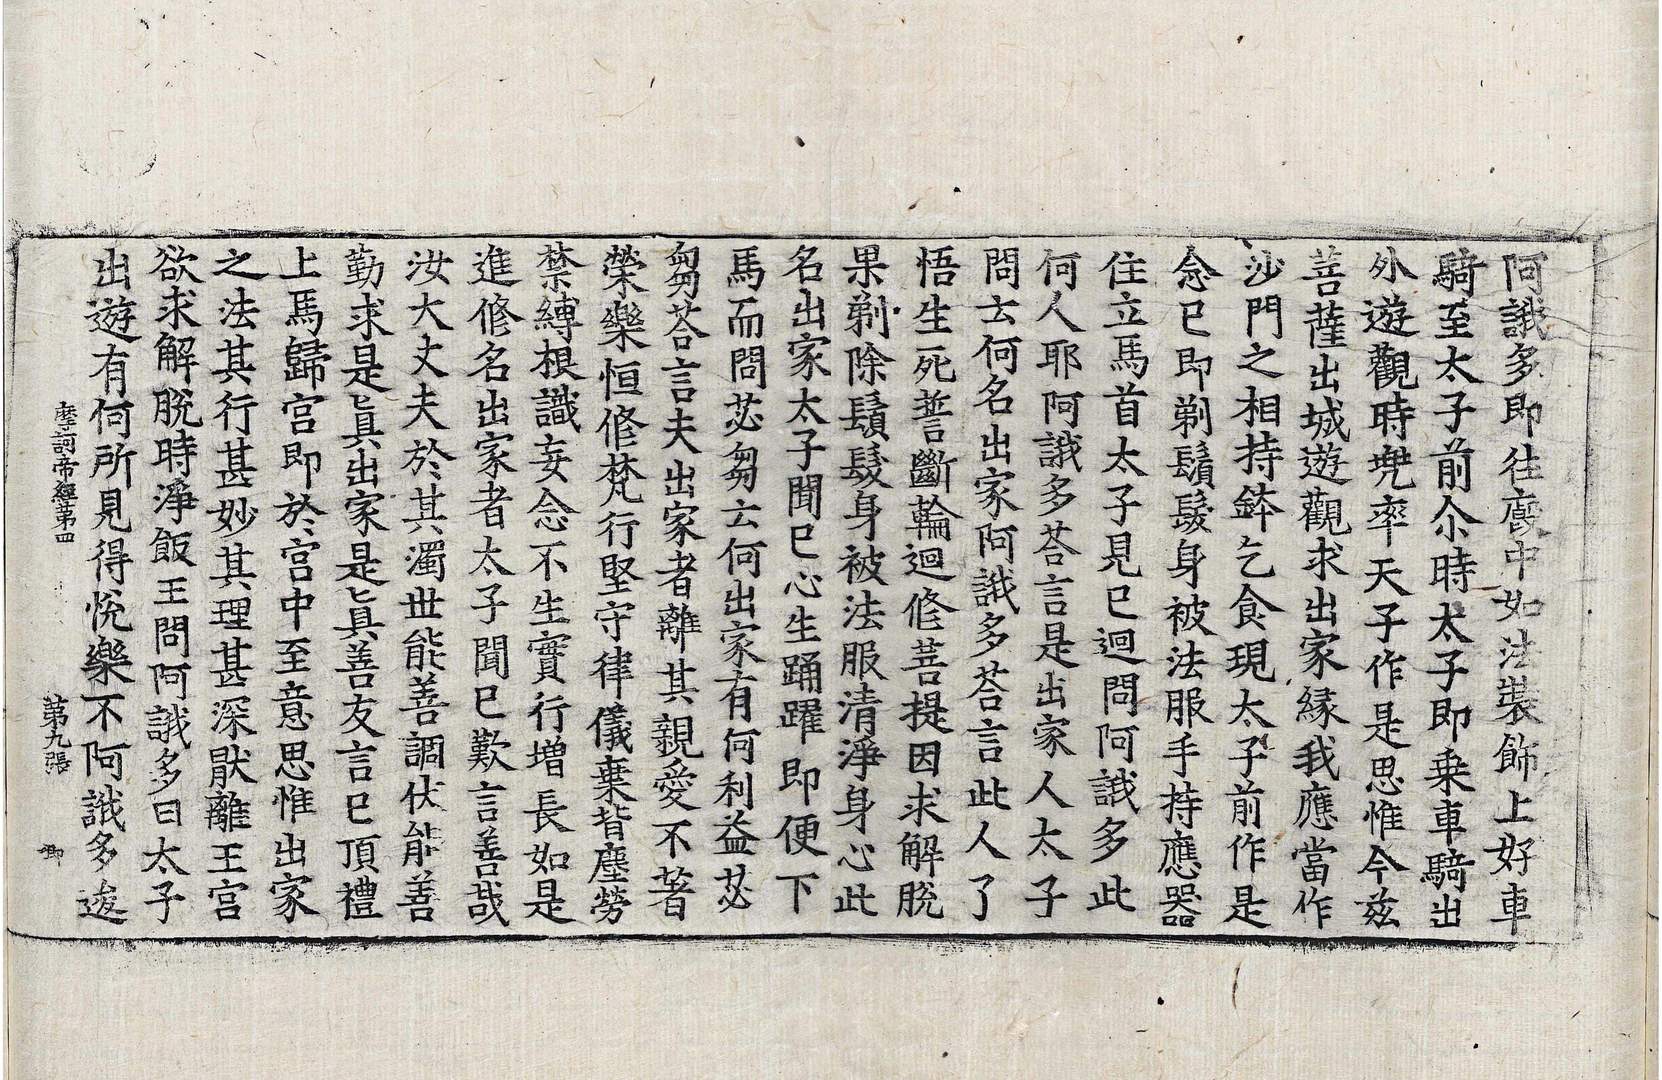 阿誐多即往廄中如法裝飾上好車
騎至太子前尒時太子即乗車騎出
外遊觀時兠率天子作是思惟今兹
菩薩出城遊觀求出家縁我應當作
沙門之相持鉢乞食現太子前作是
念已即剃鬚髮身被法服手持應器
住立馬首太子見已迴問阿誐多此
何人耶阿誐多荅言是出家人太子
問云何名出家阿誐多荅言此人了
悟生死誓斷輪迴修菩提因求解脫
果剃除鬚髮身被法服清淨身心此
名出家太子聞已心生踊躍即便下
馬而問苾芻云何出家有何利益苾
芻荅言夫出家者離其親愛不著
榮樂恒修梵行堅守律儀棄背塵勞
禁縛根識妄念不生實行增長如是
進修名出家者太子聞已歎言善哉
汝大丈夫於其濁世能善調伏能善
勤求是真出家是真善友言已頂禮
上馬歸宮即於宮中至意思惟出家
之法其行甚妙其理甚深猒離王宮
欲求解脫時淨飯王問阿誐多曰太子
出遊有何所見得悅樂不阿誐多逡
摩訶帝經第四 第九張 卿